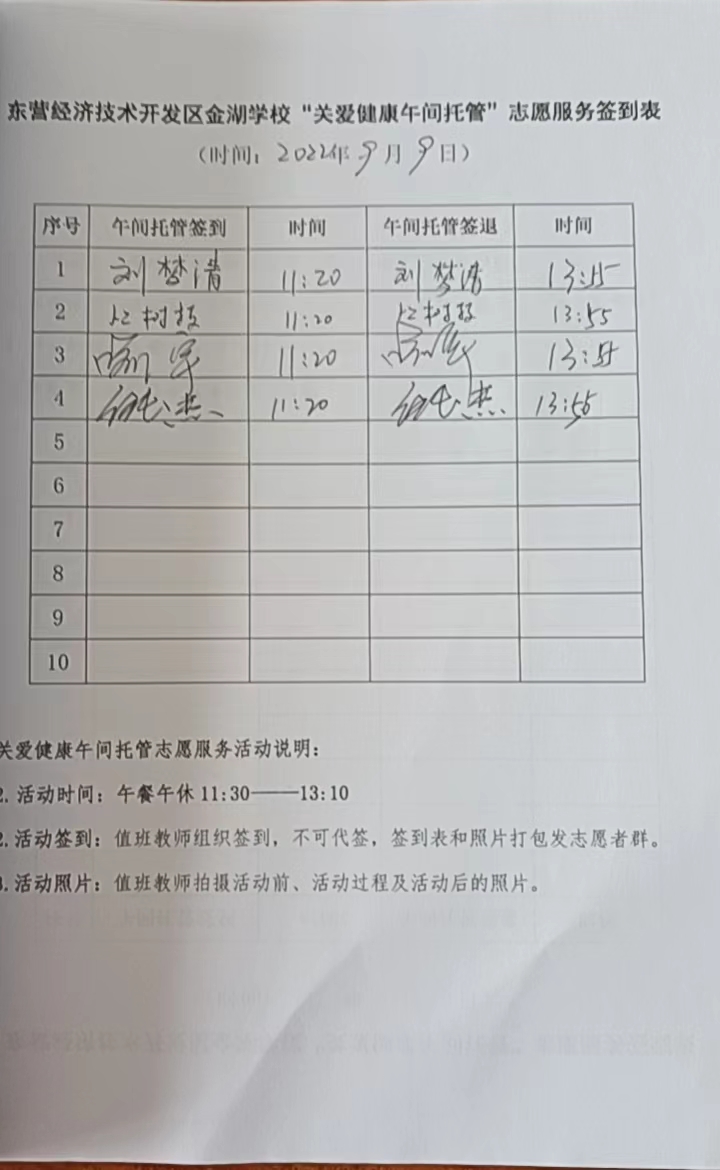 东营经济技术开发区金湖学校“关爱健康午间托管”志愿服务签到表
（时间：2022年9月9日）
序号 午间托管签到 时间 午间托管签退 时间
1 刘梦清 11:20 刘梦清 13:55
2 11:20 13:55
3 11:20 13:55
4 11:20 13:56
5
6
7
8
9
10
关爱健康午间托管志愿服务活动说明：
2.活动时间：午餐午休 11:30——13:10
2.活动签到：值班教师组织签到，不可代签，签到表和照片打包发志愿者群。
3.活动照片：值班教师拍摄活动前、活动过程及活动后的照片。